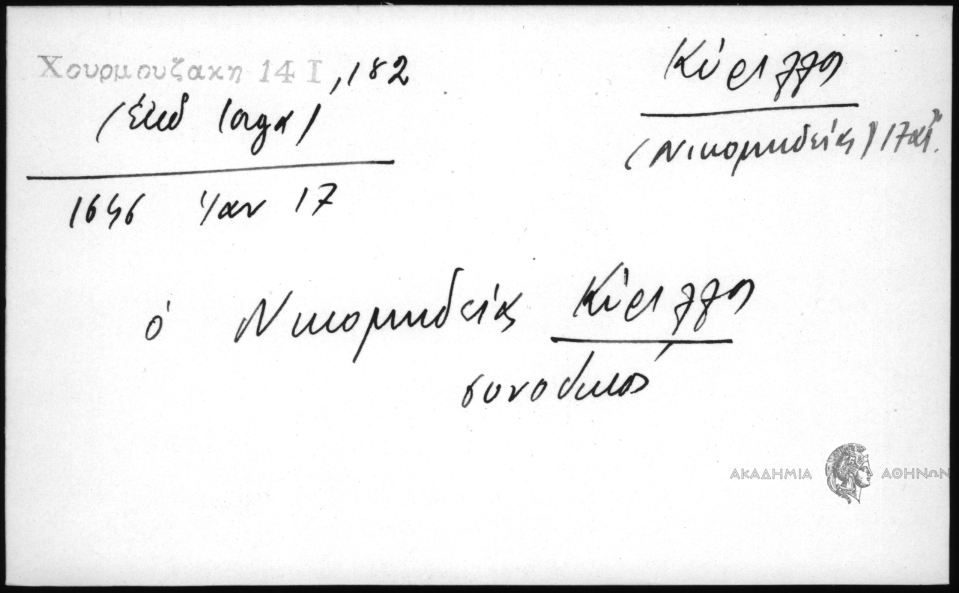 Χουρμουζακη 14 Ι, 182
(ἐκδ Ιοργα)
1646 Ἰαν 17
Κύριλλος
(Νικομηδείας) 17 αἰ.
ὁ Νικομηδείας Κύριλλος
συνοδικός
ΑΚΑΔΗΜΙΑ ΑΘΗΝΩΝ